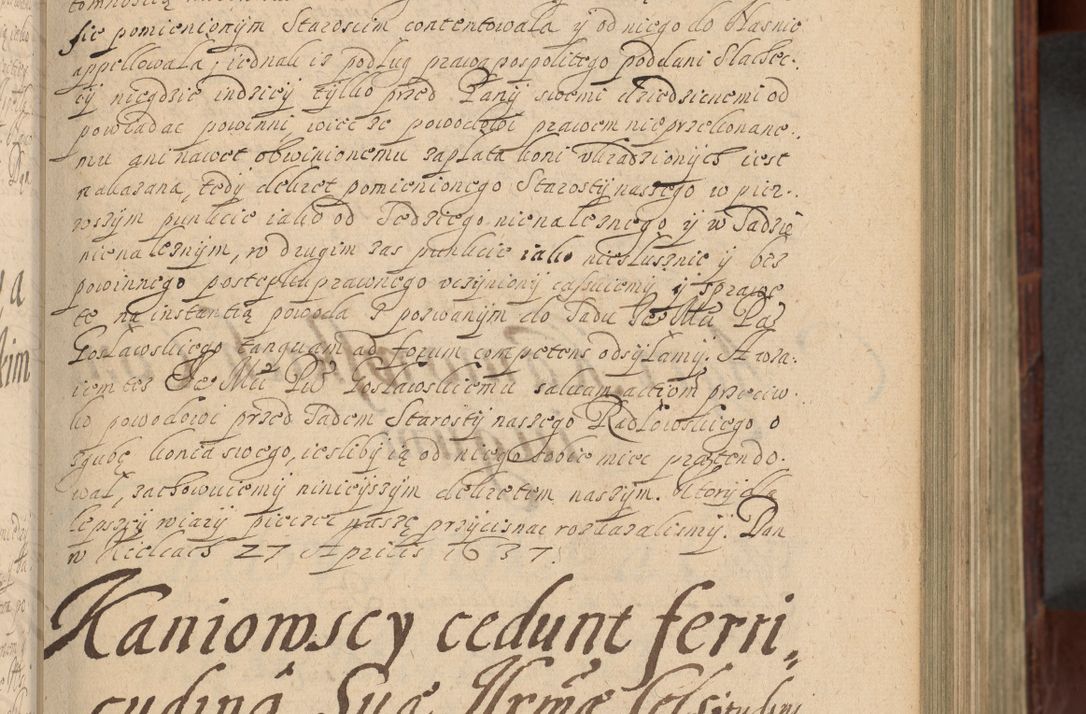 sie pomienionym Starosczim contentowała y od niego do Nas nie
appellowała, iednak iż podług prawa pospolitego poddani Szlachec.
cy niegdzie indziey tylko przed Pany swemi dziedzicznemi od
powiadac powinni, więc ze powodowi prawem nieprzekonane.
mu ani nawet obwinionemu zapłata koni ukradzionych iest
nakazana, tedy dekret pomienionego Starosty naszego w pier.
wszym punkcie iako od Sędziego nienależnego y w Sądzie
nienależnym, w drugim zas punkcie iako niesłusznie y bez
powinnego postępku prawnego uczyniony cassuiemy y sprawę
tę na instantią powoda z pozwanym do Sądu Je Mci Pa
Gosławskiego tanquam ad forum competens odsyłamy. A wza.
iem tez Je Mci Pu Gosławskiemu salvam actiom przeciw.
ko powodowi przed Sądem Starosty naszego Radłowskiego o
zgubę konia swego, iesliby ią od niego sobie miec prætendo.
wał, zachowuiemy ninieyszym dekretem naszym. Ktory dla
lepszey wiary pieczęc naszę przycisnac rozkazalismy. Dan
w Kielcach 27 Aprilis 1637.
Kaniowscy cedunt ferri,,
cudina Suæ Illrmæ Celsitudini